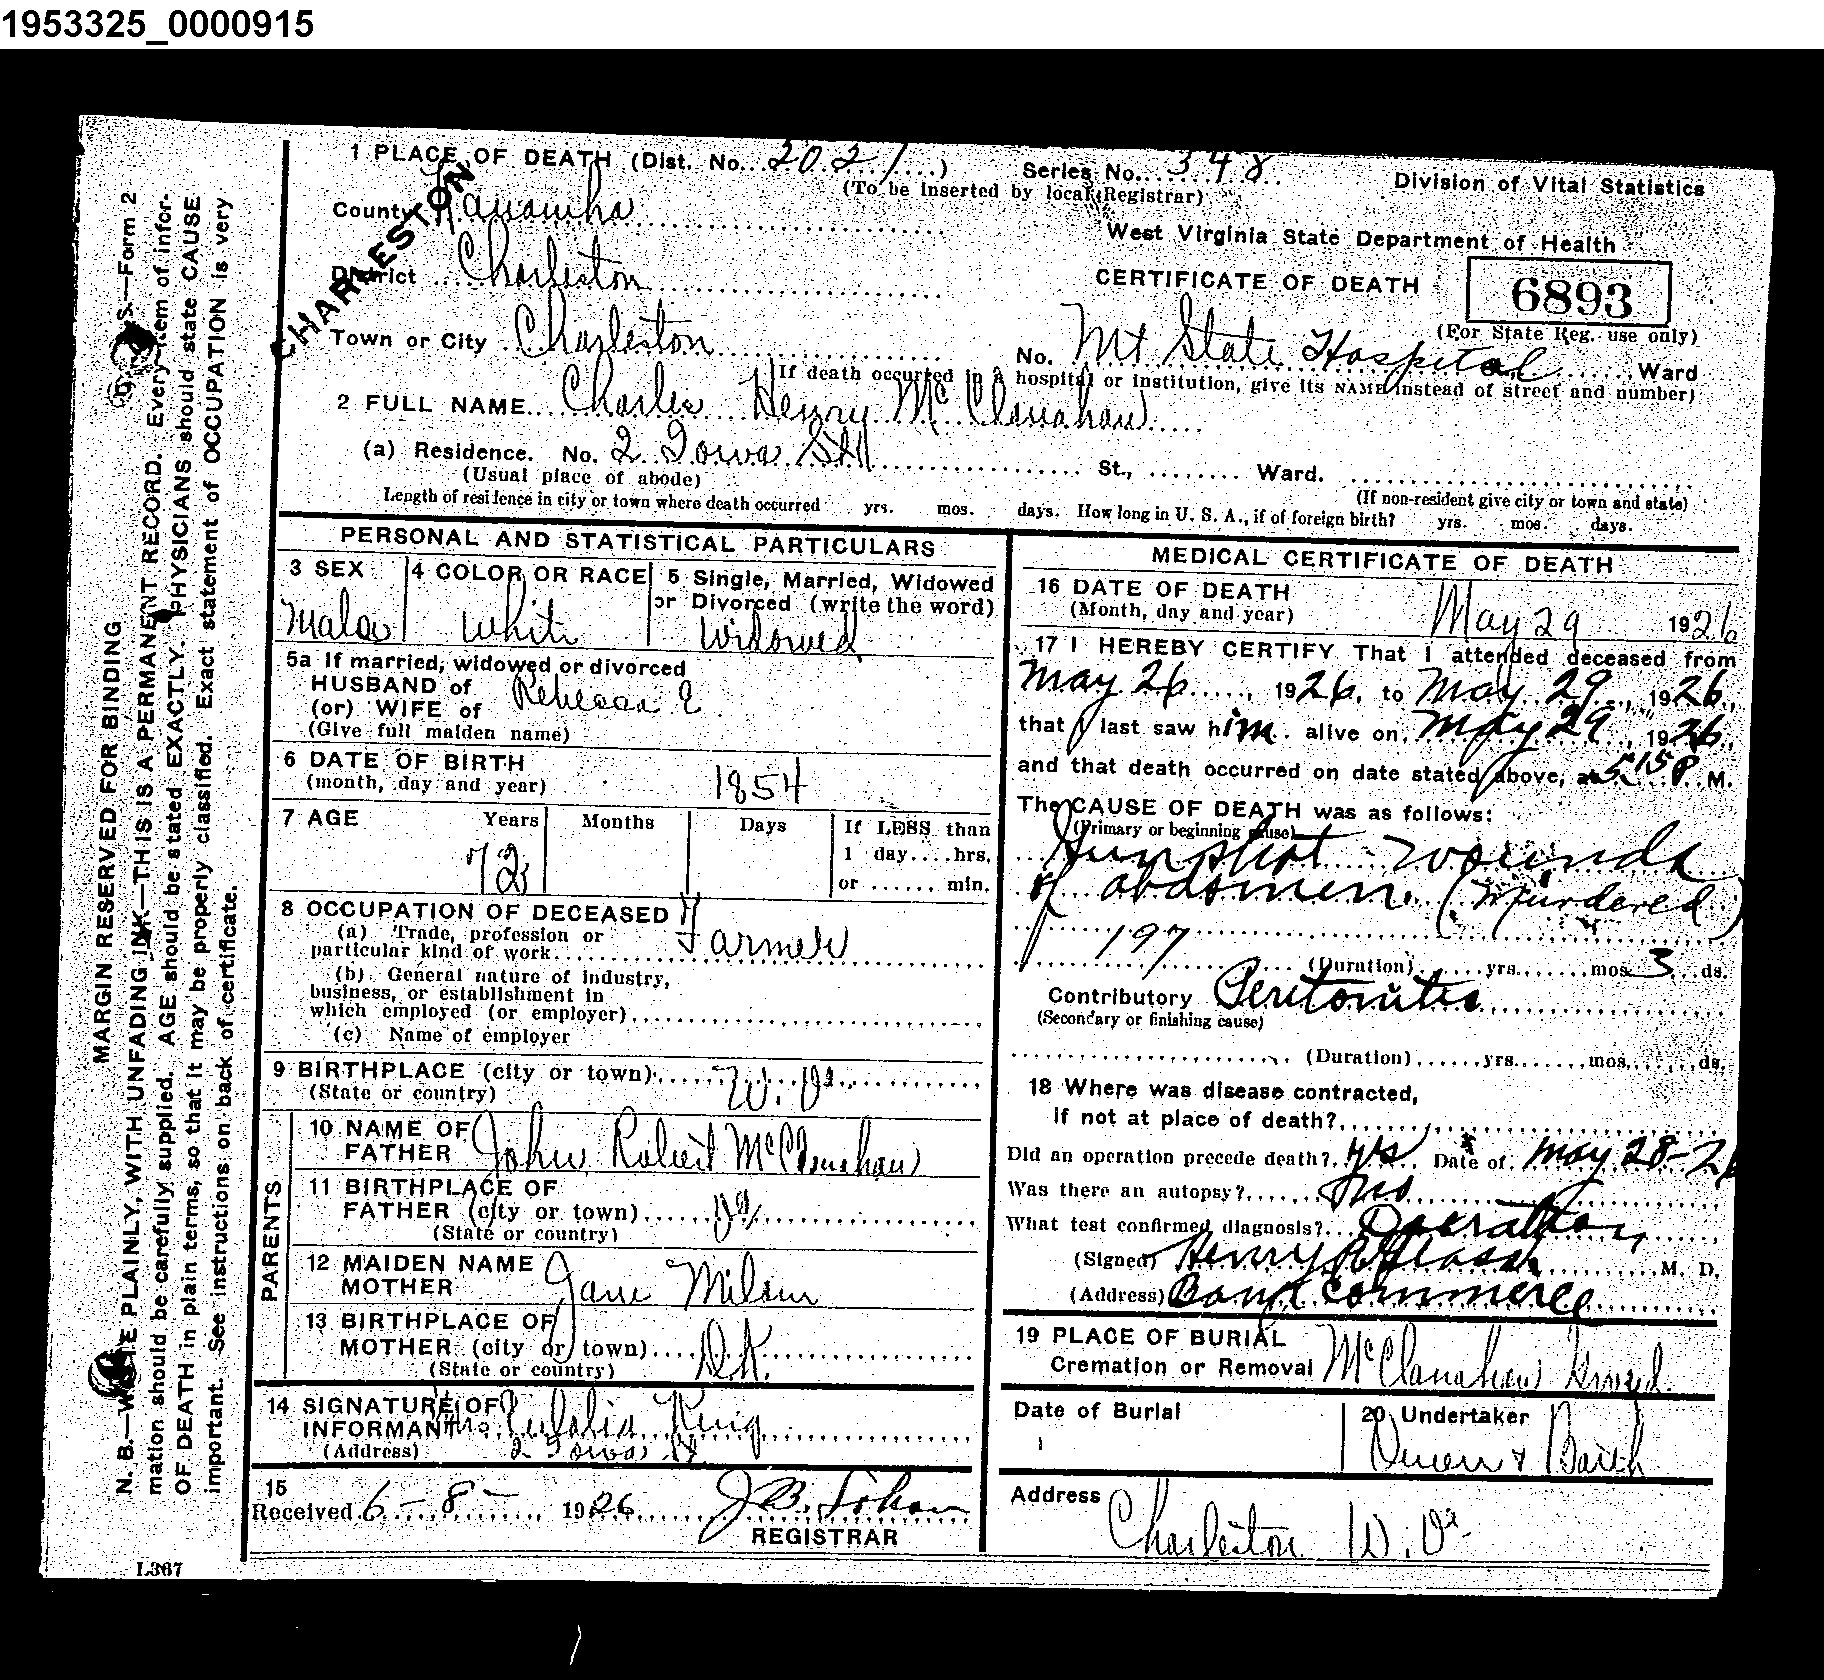 1953325_0000915
1 PLACE OF DEATH (Dist. No. 2021)
Series No. 348
(To be inserted by local Registrar)
Division of Vital Statistics
County Kanawha
CHARLESTON
West Virginia State Department of Health
District Charleston
CERTIFICATE OF DEATH
6893
(For State Reg. use only)
Town or City Charleston
No. Mt State Hospital Ward
(If death occurred in a hospital or institution, give its NAME instead of street and number)
2 FULL NAME Charles Henry McClanahan
(a) Residence. No. 2 Iowa St St., Ward.
(Usual place of abode)
(If non-resident give city or town and state)
Length of residence in city or town where death occurred yrs. mos. days. How long in U. S. A., if of foreign birth? yrs. mos. days.
PERSONAL AND STATISTICAL PARTICULARS
3 SEX
Male
4 COLOR OR RACE
White
5 Single, Married, Widowed
or Divorced (write the word)
Widowed
5a If married, widowed or divorced
HUSBAND of
(or) WIFE of
Rebecca E
(Give full maiden name)
6 DATE OF BIRTH
(month, day and year)
1854
7 AGE Years Months Days
72
If LESS than
1 day....hrs.
or ...... min.
8 OCCUPATION OF DECEASED
(a) Trade, profession or
particular kind of work Farmer
(b) General nature of industry,
business, or establishment in
which employed (or employer)
(c) Name of employer
9 BIRTHPLACE (city or town) W. Va.
(State or country)
PARENTS
10 NAME OF
FATHER John Robert McClanahan
11 BIRTHPLACE OF
FATHER (city or town) Va
(State or country)
12 MAIDEN NAME
MOTHER Jane Milam
13 BIRTHPLACE OF
MOTHER (city or town) D.K.
(State or country)
14 SIGNATURE OF
INFORMANT Mrs. Eulalia King
(Address) 2 Iowa St
15
Received 6-8- 1926
REGISTRAR
L367
MEDICAL CERTIFICATE OF DEATH
16 DATE OF DEATH
(Month, day and year)
May 29 1926
17 I HEREBY CERTIFY That I attended deceased from
May 26, 1926, to May 29, 1926,
that I last saw him alive on May 29, 1926,
and that death occurred on date stated above, at 5 15 P M.
The CAUSE OF DEATH was as follows:
(Primary or beginning cause)
Gunshot wounds
of abdomen. (Murdered)
197
(Duration) yrs. mos. 3 ds.
Contributory Peritonitis
(Secondary or finishing cause)
(Duration) yrs. mos. ds.
18 Where was disease contracted,
if not at place of death?
Did an operation precede death? Yes Date of May 28-26
Was there an autopsy? No
What test confirmed diagnosis? Operation
(Signed) Henry M. D.
(Address) Commerce
19 PLACE OF BURIAL
Cremation or Removal McClanahan
Date of Burial
20 Undertaker
& Barth
Address
Charleston W. Va
MARGIN RESERVED FOR BINDING
N. B.—WRITE PLAINLY, WITH UNFADING INK—THIS IS A PERMANENT RECORD. Every item of infor-
mation should be carefully supplied. AGE should be stated EXACTLY. PHYSICIANS should state CAUSE
OF DEATH in plain terms, so that it may be properly classified. Exact statement of OCCUPATION is very
important. See instructions on back of certificate.
S.—Form 2